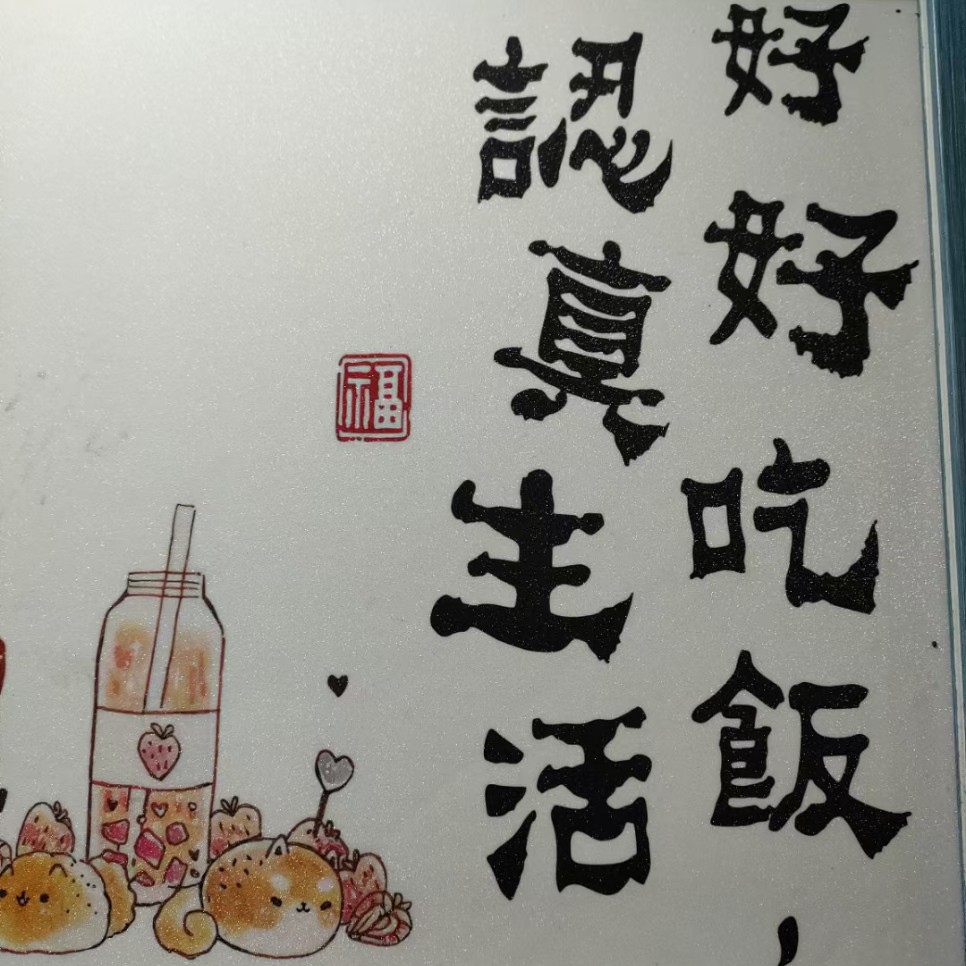 好好吃飯，
認真生活
福